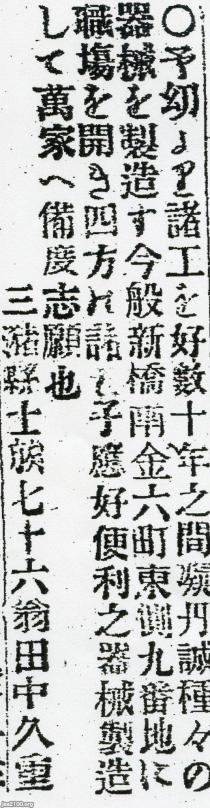 ○予幼より諸工を好數十年之間凝丹誠種々の
器械を製造す今般新橋南金六町東側九番地に
職塲を開き四方の諸君子應好便利之器械製造
して萬家へ備度志願也
三潴縣士族七十六翁田中久重
jaa2100.org